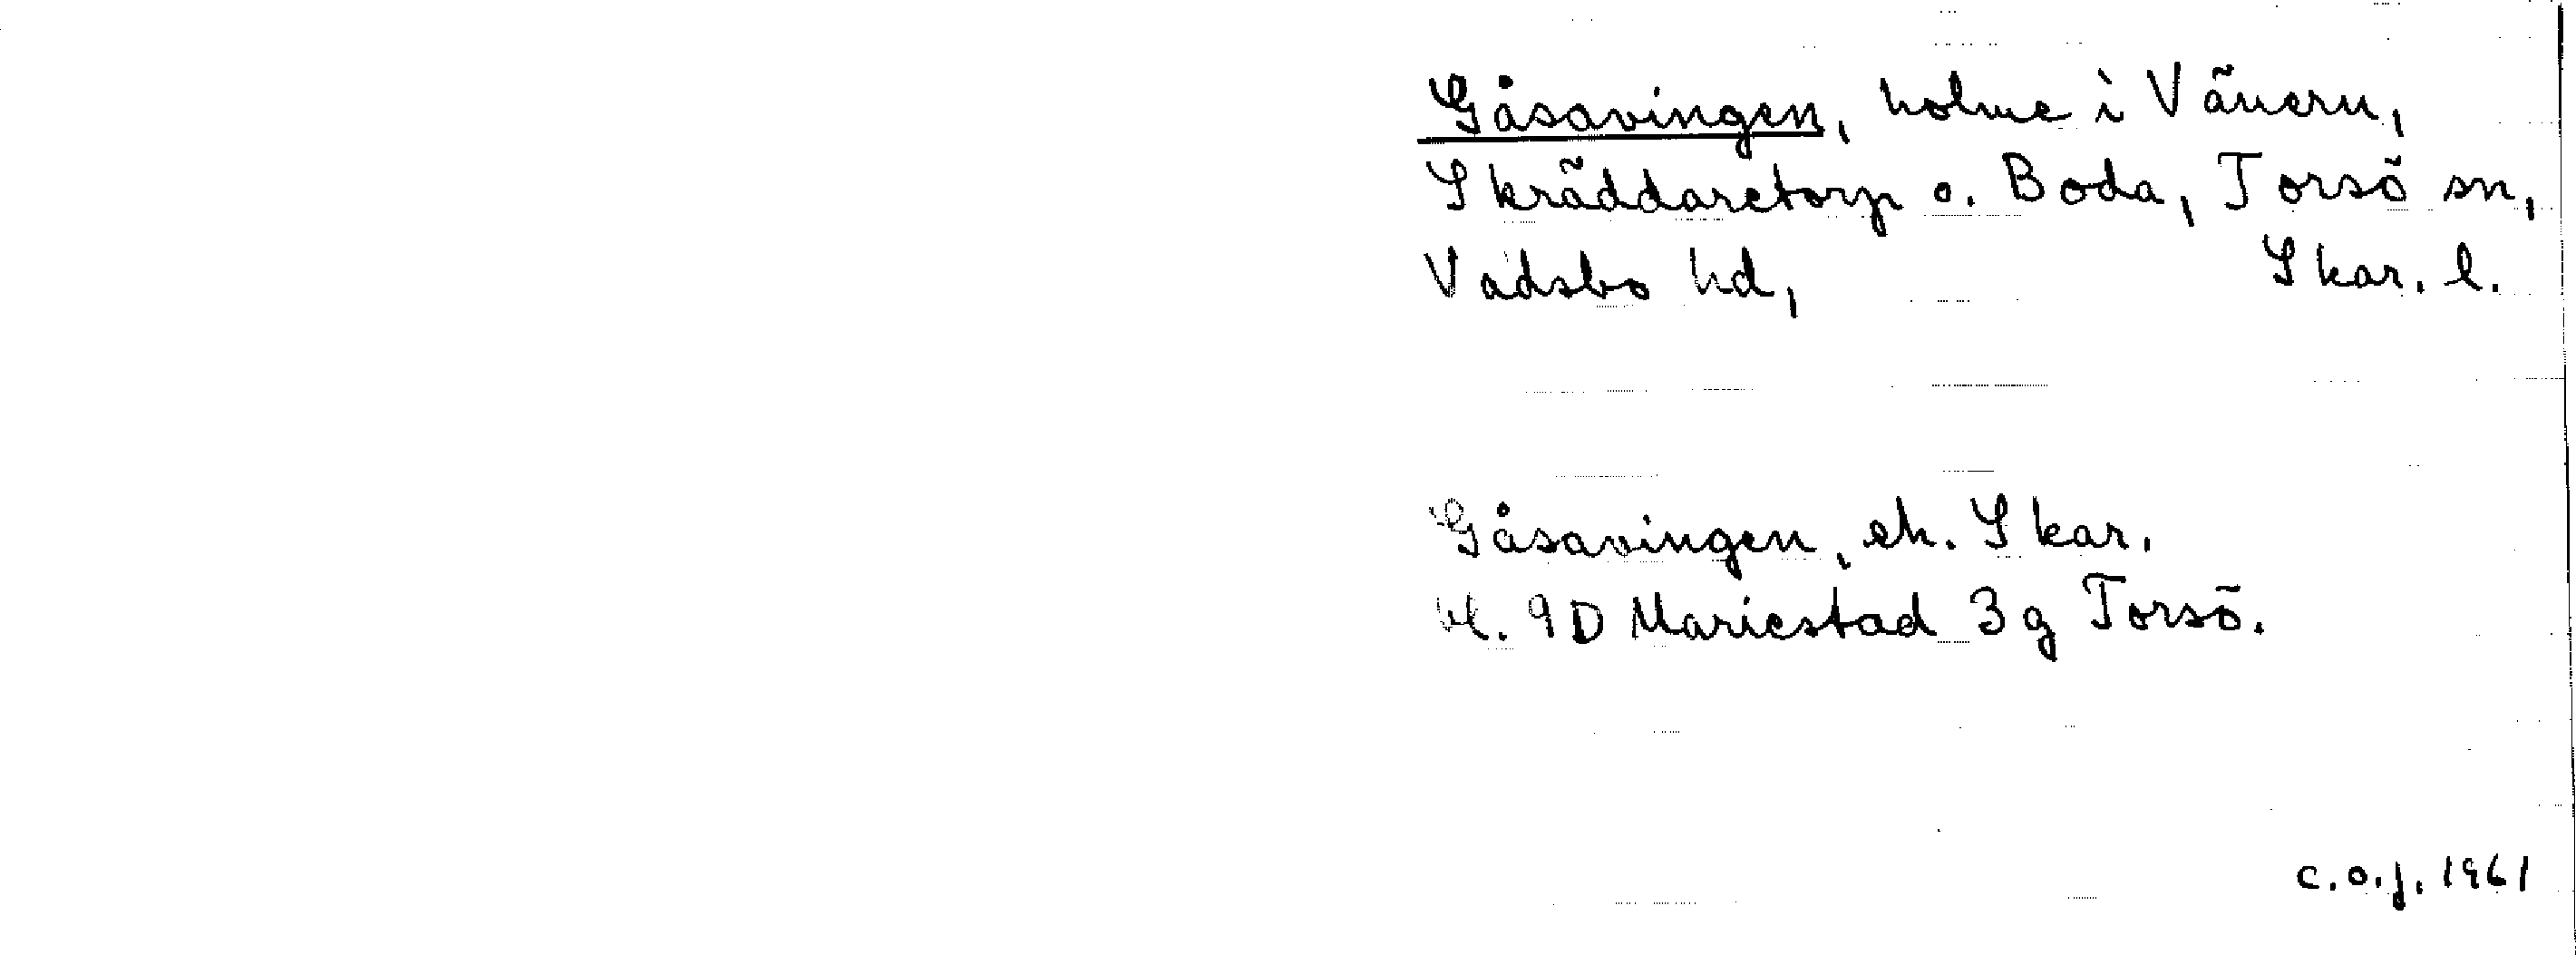 Gåsavingen, holme i Vänern,
Skräddaretorp o. Boda, Torsö sn,
Vadsbo hd, Skar. l.
Gåsavingen, ek. Skar.
bl. 9D Mariestad 3g Torsö.
c.o.j. 1961